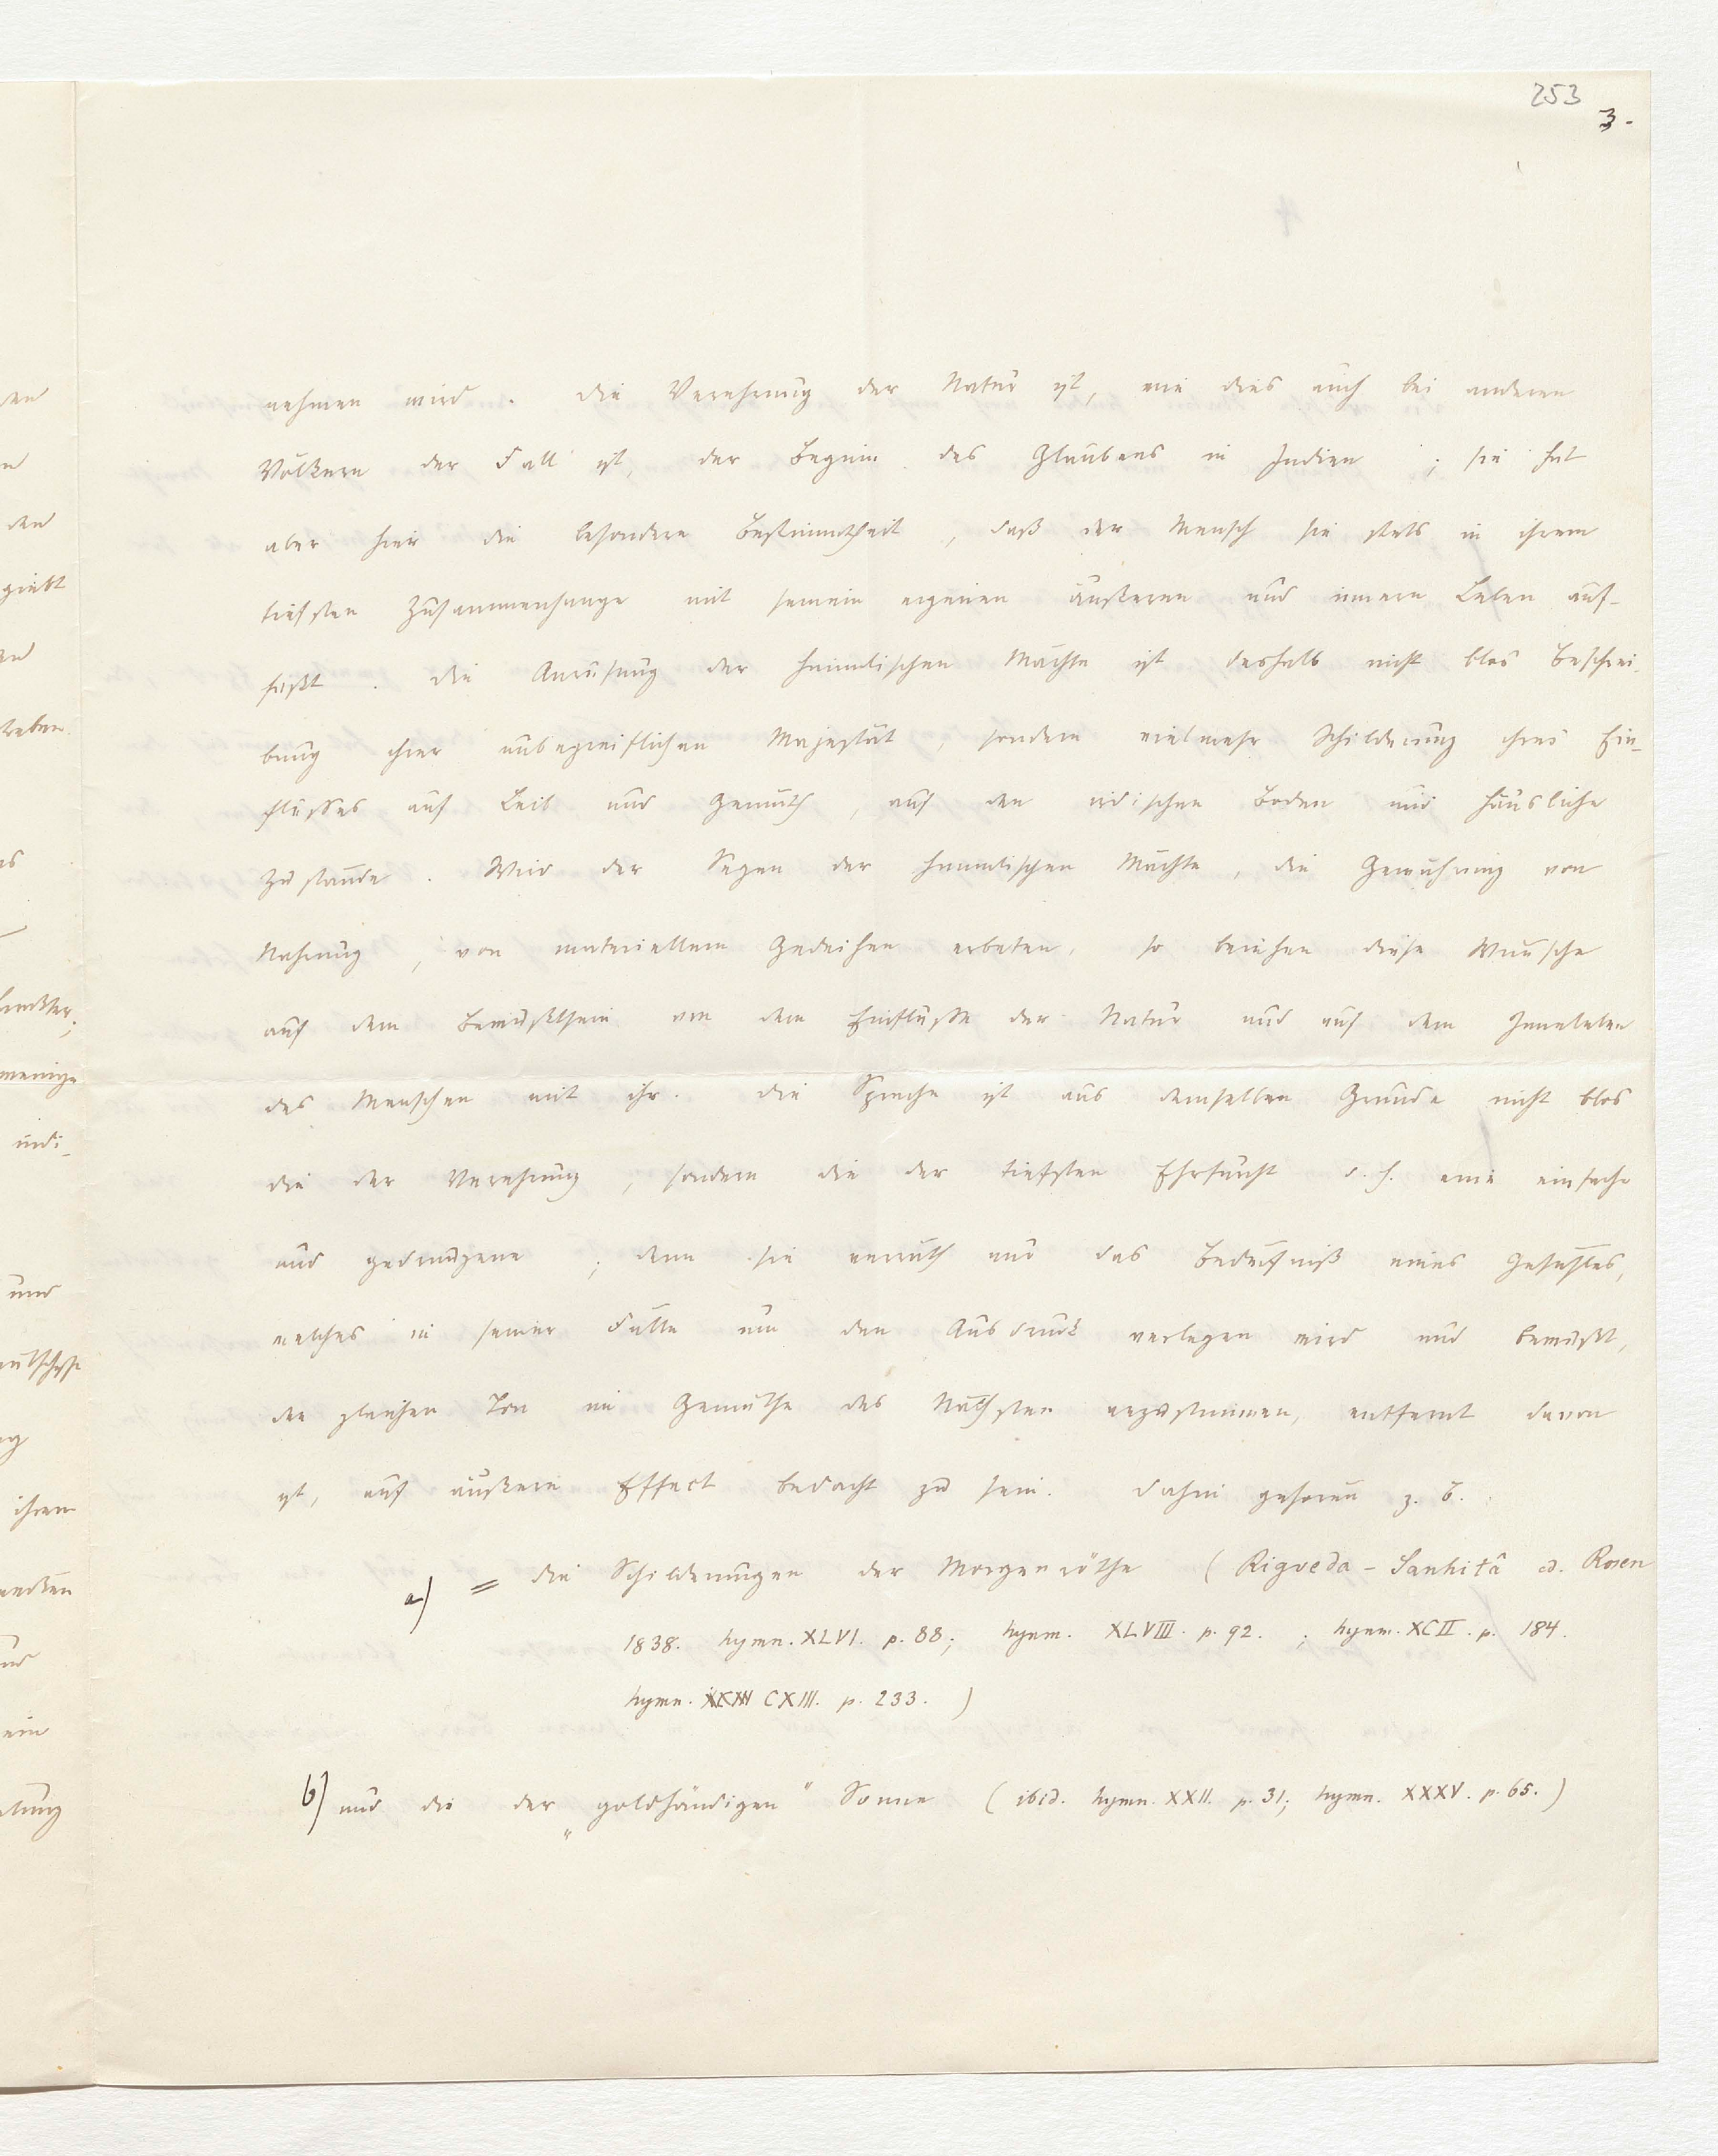 253
3.
nehmen wird. Die Verehrung der Natur ist, wie dies auch bei anderen
Völkern der Fall ist, der Beginn des Glaubens in Indien; sie hat
aber hier die besondere Bestimmtheit, daß der Mensch sie stets in ihrem
tiefsten Zusammenhange mit seinem eigenen äußeren und innern Leben auf-
faßt. Die Anrufung der himmlischen Mächte ist deshalb nicht blos Beschrei-
bung ihrer unbegreiflichen Majestät, sondern vielmehr Schilderung ihres Ein-
flusses auf Leib und Gemüth, auf den irdischen Boden und häusliche
Zustände. Wird der Segen der himmlischen Mächte, die Gewährung von
Nahrung, von materiellem Gedeihen erbeten, so beruhen diese Wünsche
auf dem Bewußtsein von dem Einflusse der Natur und auf dem Inneleben
des Menschen mit ihr. Die Sprache ist aus demselben Grunde nicht blos
die der Verehrung, sondern die der tiefsten Ehrfurcht d. h. eine einfache
und gedrungene; denn sie verräth nur das Bedürfniß eines Gefühles,
welches in seiner Fülle um den Ausdruck verlegen wird und bemüht,
den gleichen Ton im Gemüthe des Nächsten anzustimmen, entfernt davon
ist, auf äußern Effect bedacht zu sein. Dahin gehören z. B.
a) = die Schilderungen der Morgenröthe (Rigveda-Sanhitâ ed. Rosen
1838. hymn. XLVI. p. 88; hymn. XLVIII. p. 92.; hymn. XCII. p. 184.
hymn. CXIII. p. 233.)
b) und die der „goldhändigen" Sonne (ibid. hymn. XXII. p. 31; hymn. XXXV. p. 65.)